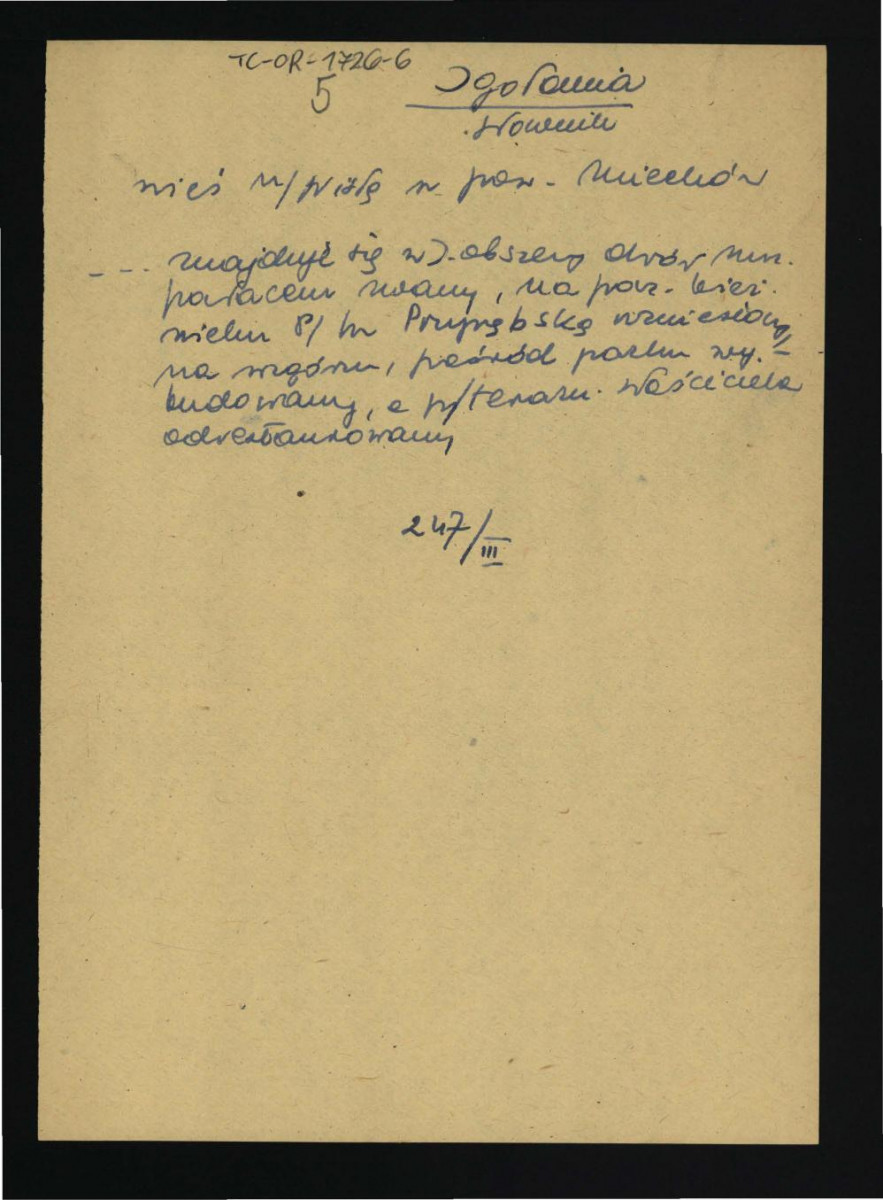 TC-OR-1726-6
5
Igołomia
Słownik
wieś n/Wisłą w pow. Miechów
--- znajduje się w J. obszerny dwór mur.
pałacem zwany, na pocz. bież.
wieku p/ hr Przyrębską wzniesiony
na wzgórzu, pośród parku wy-
budowany, a p/teraźn. właściciela
odrestaurowany
247/III